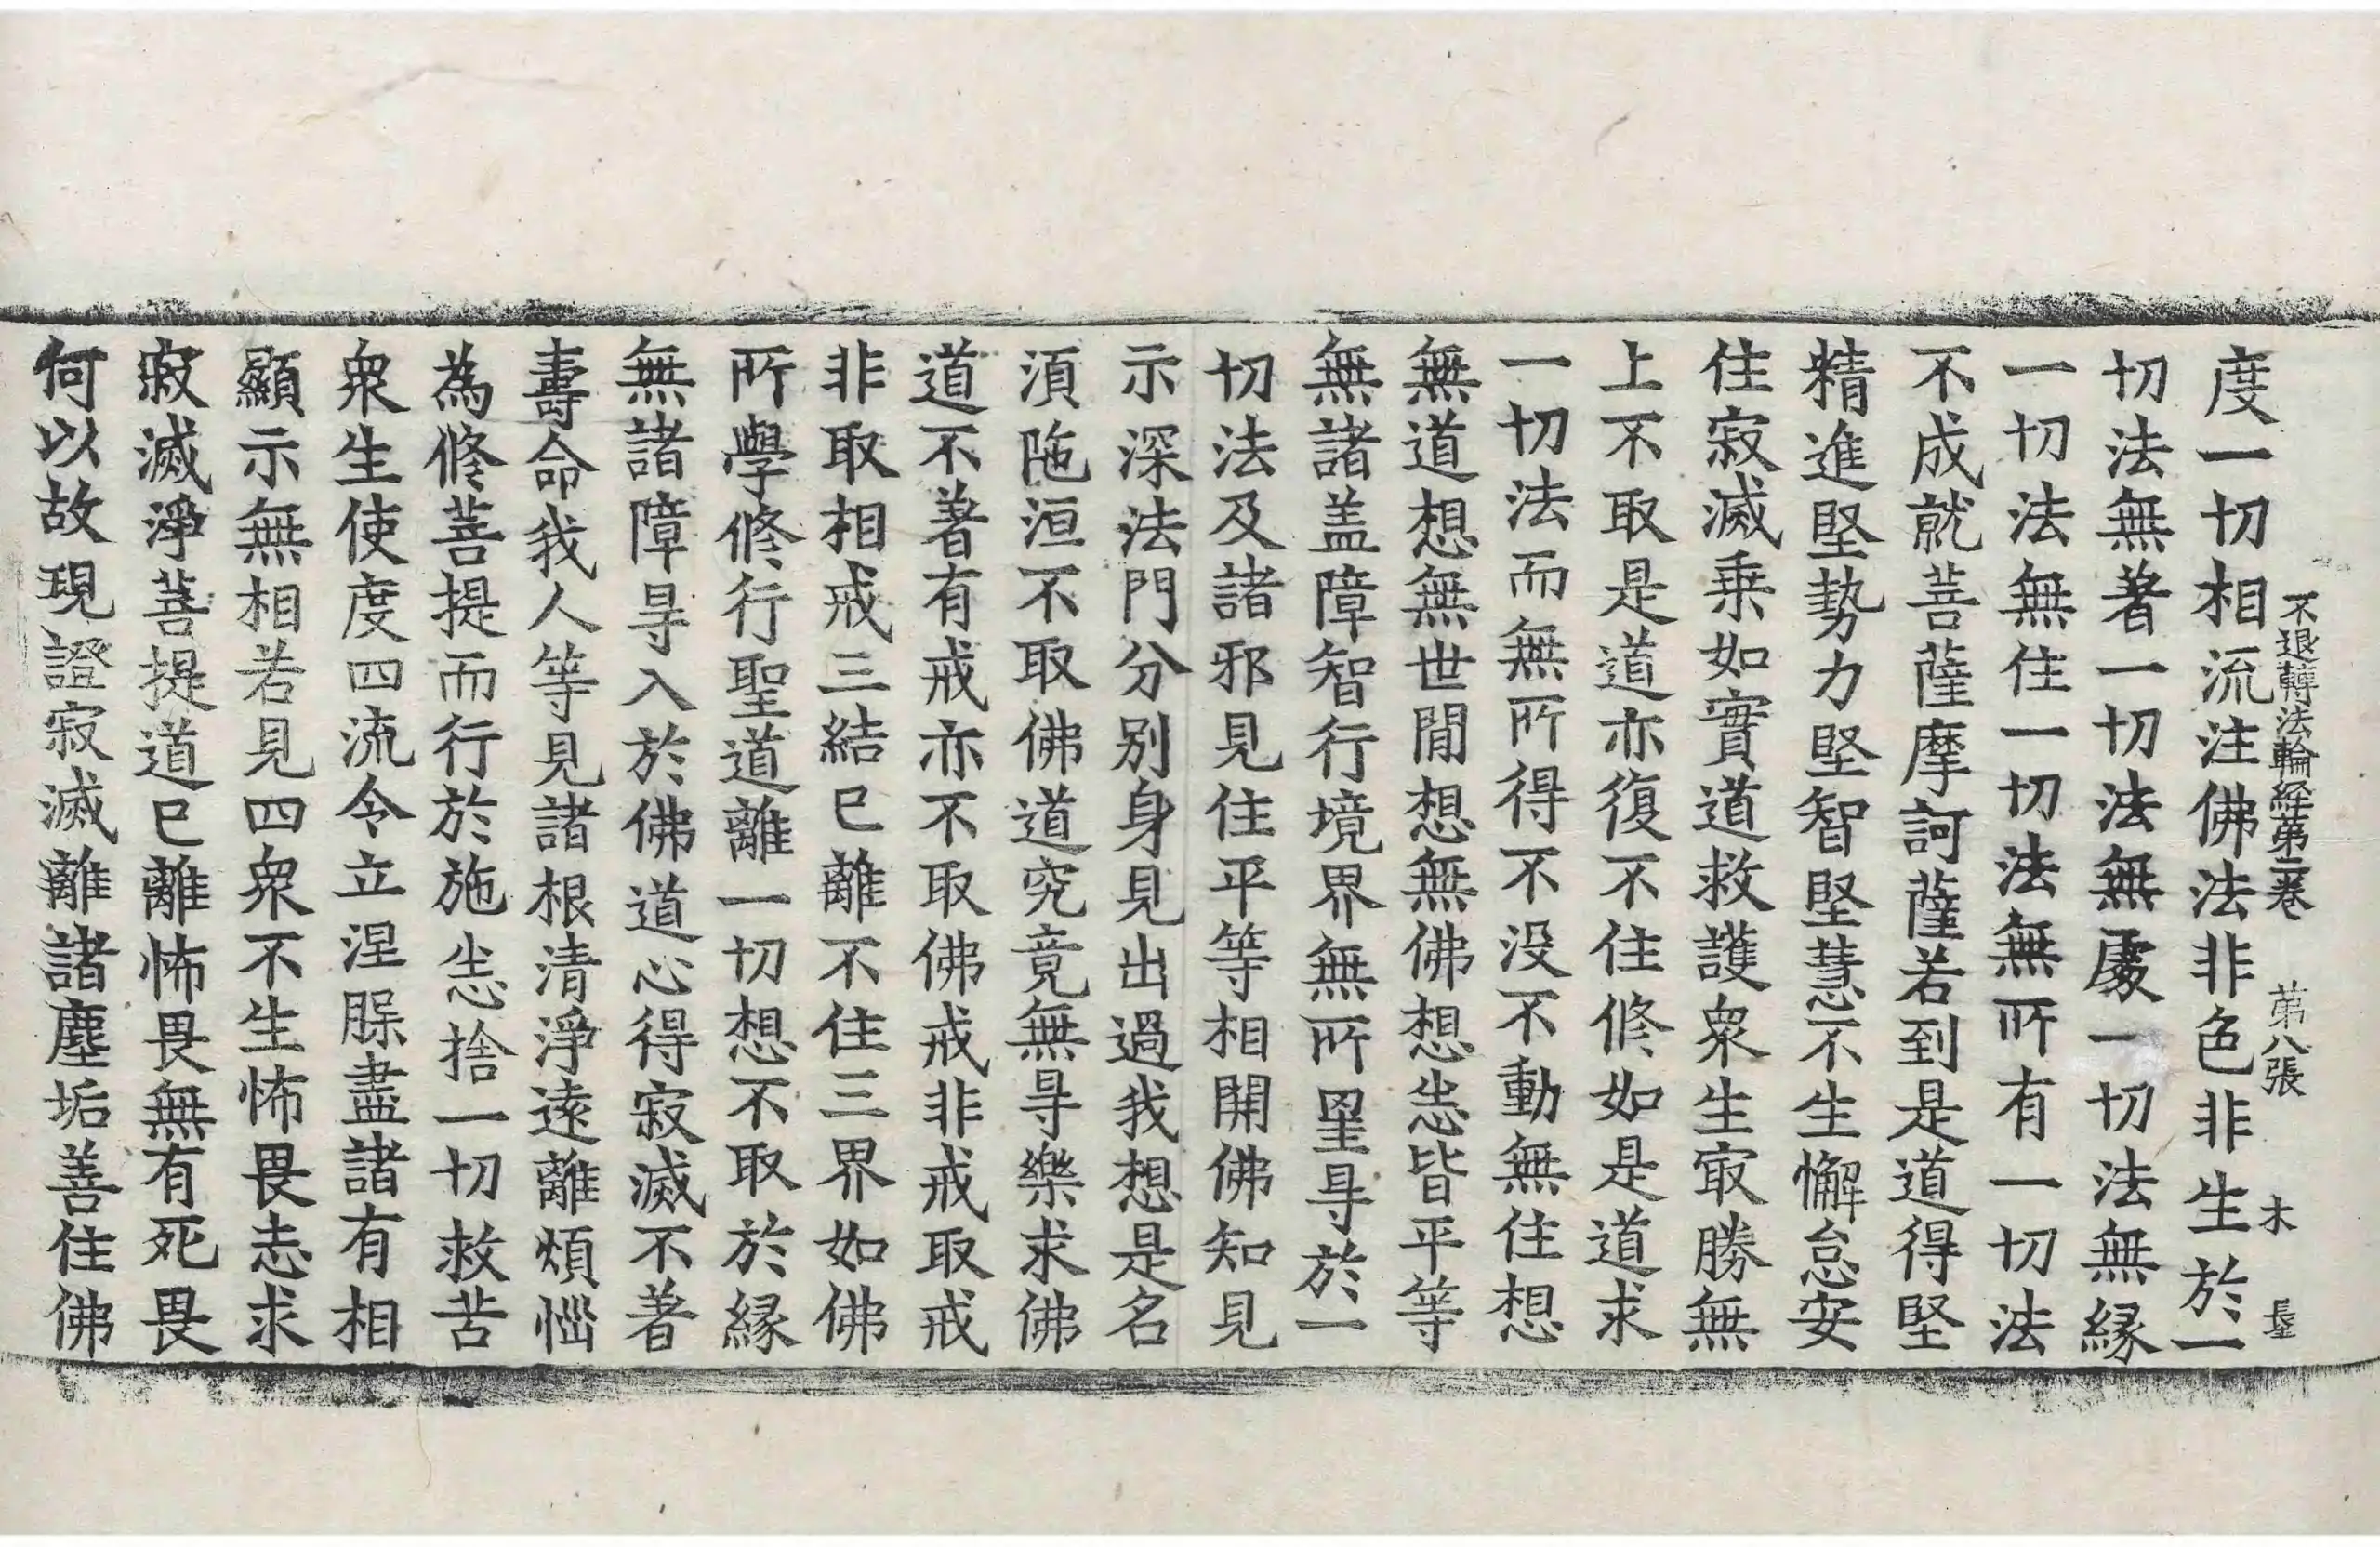 不退轉法輪經第二卷 第八張 木
度一切相流注佛法非色非生於一
切法無著一切法無處一切法無緣
一切法無住一切法無所有一切法
不成就菩薩摩訶薩若到是道得堅
精進堅勢力堅智堅慧不生懈怠安
住寂滅乗如實道救護衆生㝡勝無
上不取是道亦復不住修如是道求
一切法而無所得不没不動無住想
無道想無世閒想無佛想悉皆平等
無諸盖障智行境界無所罣㝵於一
切法及諸邪見住平等相開佛知見
示深法門分别身見出過我想是名
湏陁洹不取佛道究竟無㝵樂求佛
道不著有戒亦不取佛戒非戒取戒
非取相戒三結已離不住三界如佛
所學修行聖道離一切想不取於緣
無諸障㝵入於佛道心得寂滅不著
壽命我人等見諸根清淨遠離煩惱
為修菩提而行於施悉捨一切救苦
衆生使度四流令立涅槃盡諸有相
顯示無相若見四衆不生怖畏志求
寂滅淨菩提道已離怖畏無有死畏
何以故現證寂滅離諸塵垢善住佛